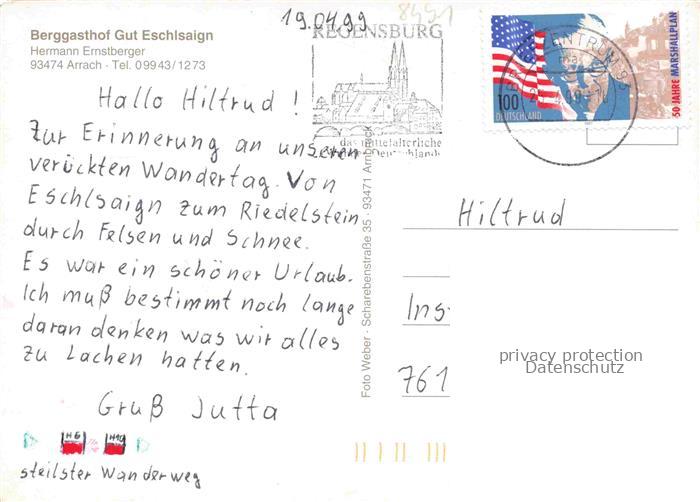 19.04.99
8491
Berggasthof Gut Eschlsaign
Hermann Ernstberger
93474 Arrach · Tel. 09943/1273
REGENSBURG
das mittelalterliche
BRIEFZENTRUM 93
100
DEUTSCHLAND
50 JAHRE MARSHALLPLAN
Hallo Hiltrud !
Zur Erinnerung an unseren
verückten Wandertag. Von
Eschlsaign zum Riedelstein
durch Felsen und Schnee.
Es war ein schöner Urlaub.
Ich muß bestimmt noch lange
daran denken was wir alles
zu Lachen hatten.
Gruß Jutta
H6 H10
steilster Wanderweg
Foto Weber · Scharebenstraße 35 · 93471 Arnbruck
Hiltrud
Ins
761
privacy protection
Datenschutz